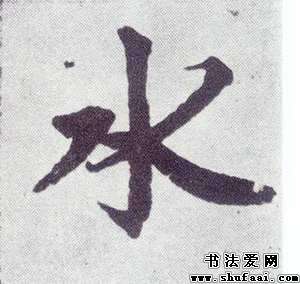 水
书法爱网
www.shufaai.com